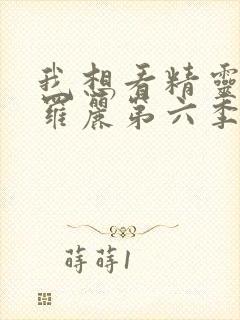 我想看精靈
羅麗第六季
蒔蒔1